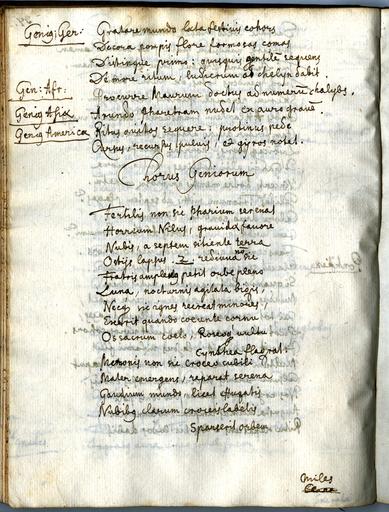 Genig Ger: Gratare mundo læta festivis cohors
Decora pompis flore formosas comas
Distingue primo: quisquis gentile sequens
De more ritum, ludicrum ad chelyn dabit.
Gen: Afr: Procurre Maurum doctus ad numerum chalybs.
Genig Asiæ Arundo pharetram nudet ex auro gravem.
Genig America Ritus avitos sequere: protinus pede
Carpus, recurptus pulvis, et gyros notet.
Chorus Geniorum
Fertilis non sic Pharium serenas
Horrium Nilus, gravida favore
Nubis, a septem sitiente terra
Ostijs lapsus. 2 rediviva sic
Fratris amplexq petit orbe pleno
Luna, nocturnis agitata bigis,
Necq sic ignes recreat minores,
Exerit quando coeunte cornu
Os sacrum coelo, Roseoq vultu
Cynthia flagrat.
Memnonis non sic croceo cubili
Mater emergens, reparat serena
Gaudium mundo, licet fugatis
Nubibq clarum croceis labellis
Sparserit orbem.
Miles